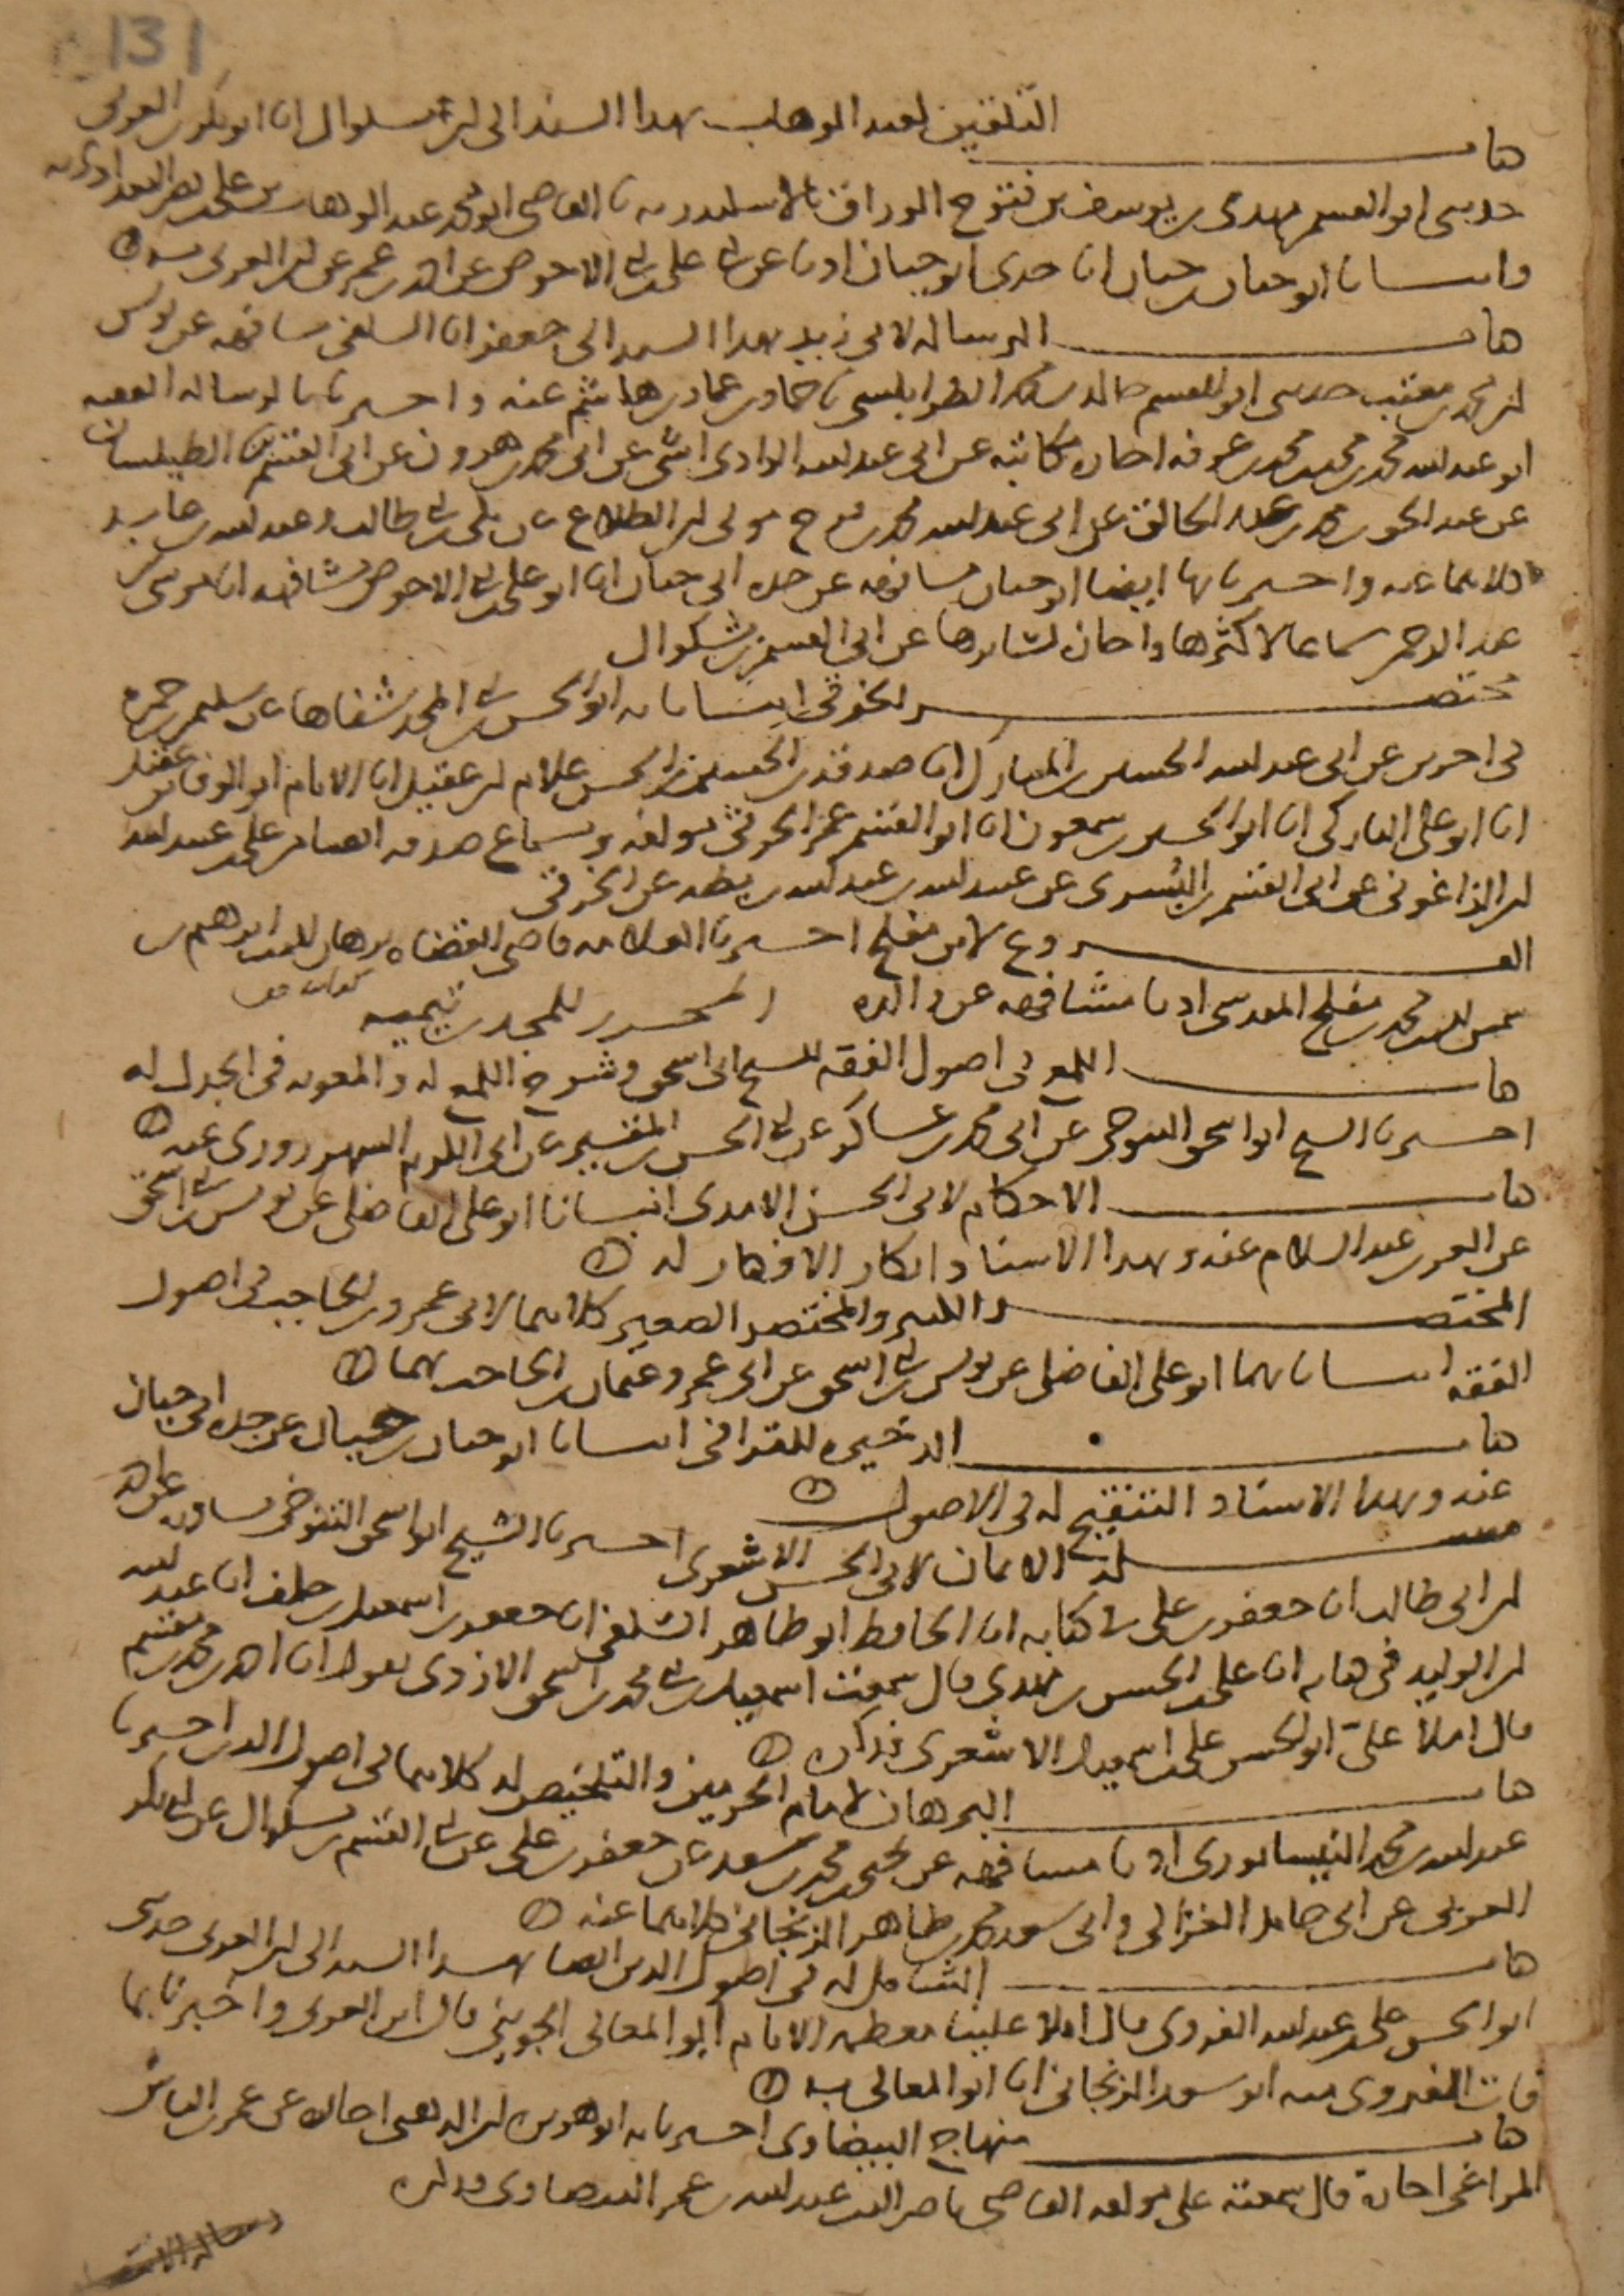 131
كتاب التلقين لعبد الوهاب بهذا السند الى ابن بشكوال انا ابو بكر بن العربي
حدثني ابو القسم مهدي بن يوسف بن فتوح الوراق بالاسكندرية نا القاضي ابو محمد عبد الوهاب بن علي بن نصر البغدادي به
وانبانا ابو حيان بن حيان انا جدي ابو حيان اذنا عن ابي علي بن ابي الاحوص عن احمد بن عمر عن ابن العربي به
كتاب الرسالة لابن ابي زيد بهذا السند الى جعفر انا السلفي مشافهة عن يونس
ابن محمد بن مغيث حدثني ابو القسم خالد بن محمد الطرابلسي نا حماد بن عمار بن هاشم عنه واخبرنا بالرسالة الفقيه
ابو عبد الله محمد بن محمد بن محمد بن عرفة اجازة مكاتبة عن ابي عبد الله الوادي اشي عن ابي محمد بن هرون عن ابي القسم بن الطيلسان
عن عبد الحق بن محمد بن عبد الخالق عن ابي عبد الله محمد بن فرج مولى ابن الطلاع عن مكي بن ابي طالب وعبد الله بن عابد
كلاهما عنه واخبرنا بها ايضا ابو حيان مشافهة عن جده ابي حيان انا ابو علي بن ابي الاحوص مشافهة انا موسى بن
عبد الرحمن سماعا لاكثرها واجازة لسائرها عن ابي القسم بن بشكوال
مختصر الخرقي انبانا به ابو الحسن بن ابي المجد شفاها عن سليمن بن حمزة
في اخرين عن ابي عبد الله الحسين بن المبارك انا صدقة بن الحسين بن الحسن غلام ابن عقيل انا الامام ابو الوفا بن عقيل
انا ابو علي المباركي انا ابو الحسين بن سمعون انا ابو القسم عمر الخرقي مولفه وبسماع صدقة ايضا من علي بن عبيد الله
ابن الزاغوني عن ابي القسم بن البسري عن عبيد الله بن عبد الله بن بطة عن الخرقي
الفروع لابن مفلح اخبرنا العلامة قاضي القضاة برهان الدين ابرهيم بن
شمس الدين محمد بن مفلح المقدسي اذنا مشافهة عن والده المحرر للمجد بن تيمية
كتاب اللمع في اصول الفقه للشيخ ابي اسحق وشرح اللمع له والمعونة في الجدل له
اخبرنا الشيخ ابو اسحق التنوخي عن ابي محمد بن عساكر عن ابي الحسن بن المقير عن ابي الكرم الشهرزوري عنه
كتاب الاحكام لابي الحسن الامدي انبانا ابو علي الفاضلي عن يونس بن ابي اسحق
عن العز بن عبد السلام عنه وبهذا الاسناد ابكار الافكار له
المختصر الكبير والمختصر الصغير كلاهما لابي عمرو بن الحاجب في اصول
الفقه انبانا بهما ابو علي الفاضلي عن يونس بن ابي اسحق عن ابي عمرو عثمان بن الحاجب بهما
كتاب الذخيرة للقرافي انبانا ابو حيان بن حيان عن جده ابي حيان
عنه وبهذا الاسناد التنقيح له في الاصول
مسئلة الايمان لابي الحسن الاشعري اخبرنا الشيخ ابو اسحق التنوخي مشافهة عن احمد
ابن ابي طالب انا جعفر بن علي في كتابه انا الحافظ ابو طاهر السلفي انا جعفر بن اسمعيل بن خلف انا عبد الله
ابن الوليد في كتابه انا علي بن الحسن بن فهد قال سمعت اسمعيل بن ابي محمد بن اسحق الازدي يقول انا احمد بن محمد بن مقسم
قال املا علي ابو الحسن علي بن اسمعيل الاشعري فذكره
كتاب البرهان لامام الحرمين والتلخيص له كلاهما في اصول الدين اخبرنا
عبد الله بن محمد النيسابوري اذنا مشافهة عن يحيى بن محمد بن سعد عن جعفر بن علي عن ابي القسم بن بشكوال عن ابي بكر
العربي عن ابي حامد الغزالي وابي سعد محمد بن طاهر الزنجاني كلاهما عنه
كتاب الشامل له في اصول الدين ايضا بهذا السند الى ابن العربي حدثني
ابو الحسن علي بن عبد الله القروي قال املا علينا معظمه الامام ابو المعالي الجويني قال ابن العربي واخبرنا بما
فات القروي منه ابو سعد الزنجاني انا ابو المعالي به
كتاب منهاج البيضاوي اخبرنا به ابو هريرة ابن الذهبي اجازة عن عمر بن الياس
المراغي اجازة قال سمعته على مولفه القاضي ناصر الدين عبد الله بن عمر البيضاوي وذكره